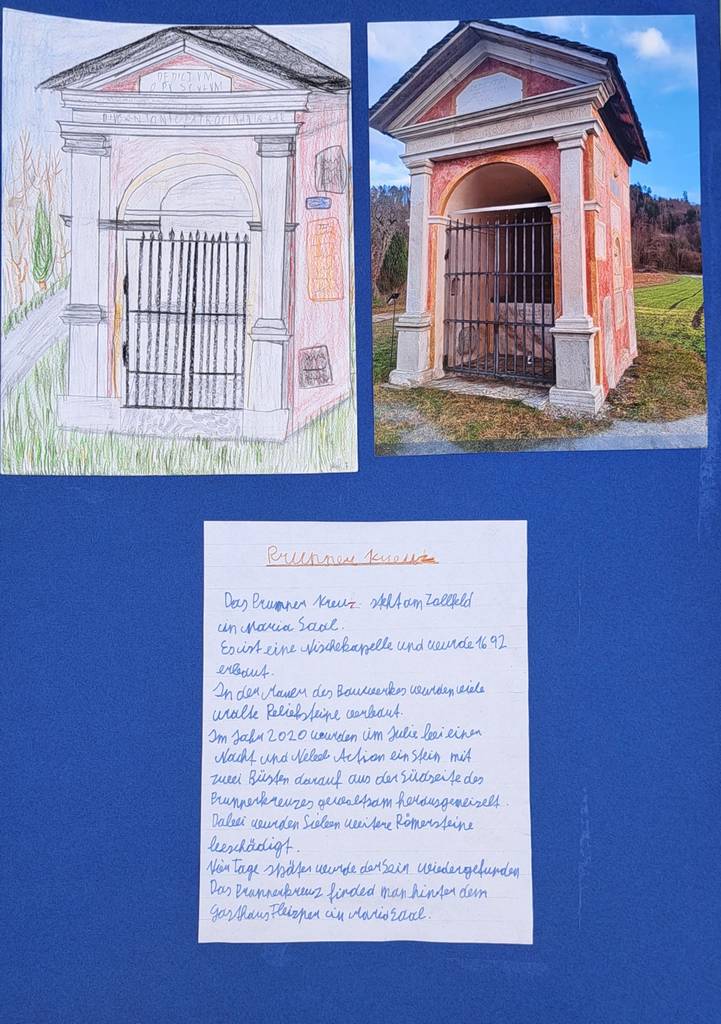 DEDICIVM
Prunner Kreuz
Das Prunner Kreuz steht am Zollfeld
in Maria Saal.
Es ist eine Nischekapelle und wurde 1692
erbaut.
In der Mauer des Bauwerkes wurden viele
uralte Reliefsteine verbaut.
Im Jahr 2020 wurden im Julie bei einer
Nacht und Nebel Action ein Stein mit
zwei Büsten darauf aus der Südseite des
Prunnerkreuzes gewaltsam herausgemeiselt.
Dabei wurden Sieben weitere Römersteine
beschädigt.
Vier Tage später wurde der Sein wiedergefunden
Das Prunnerkreuz finded man hinter dem
Gasthaus in Maria Saal.